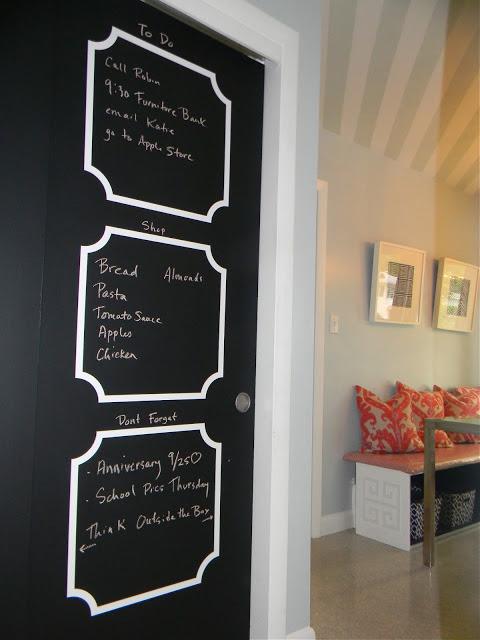 To Do
Call Robin
9:30 Furniture Bank
email Katie
go to Apple Store
Shop
Bread Almonds
Pasta
Tomato Sauce
Apples
Chicken
Dont Forget
. Anniversary 9/25♡
. School Pics Thursday
Think Outside the Box
← →